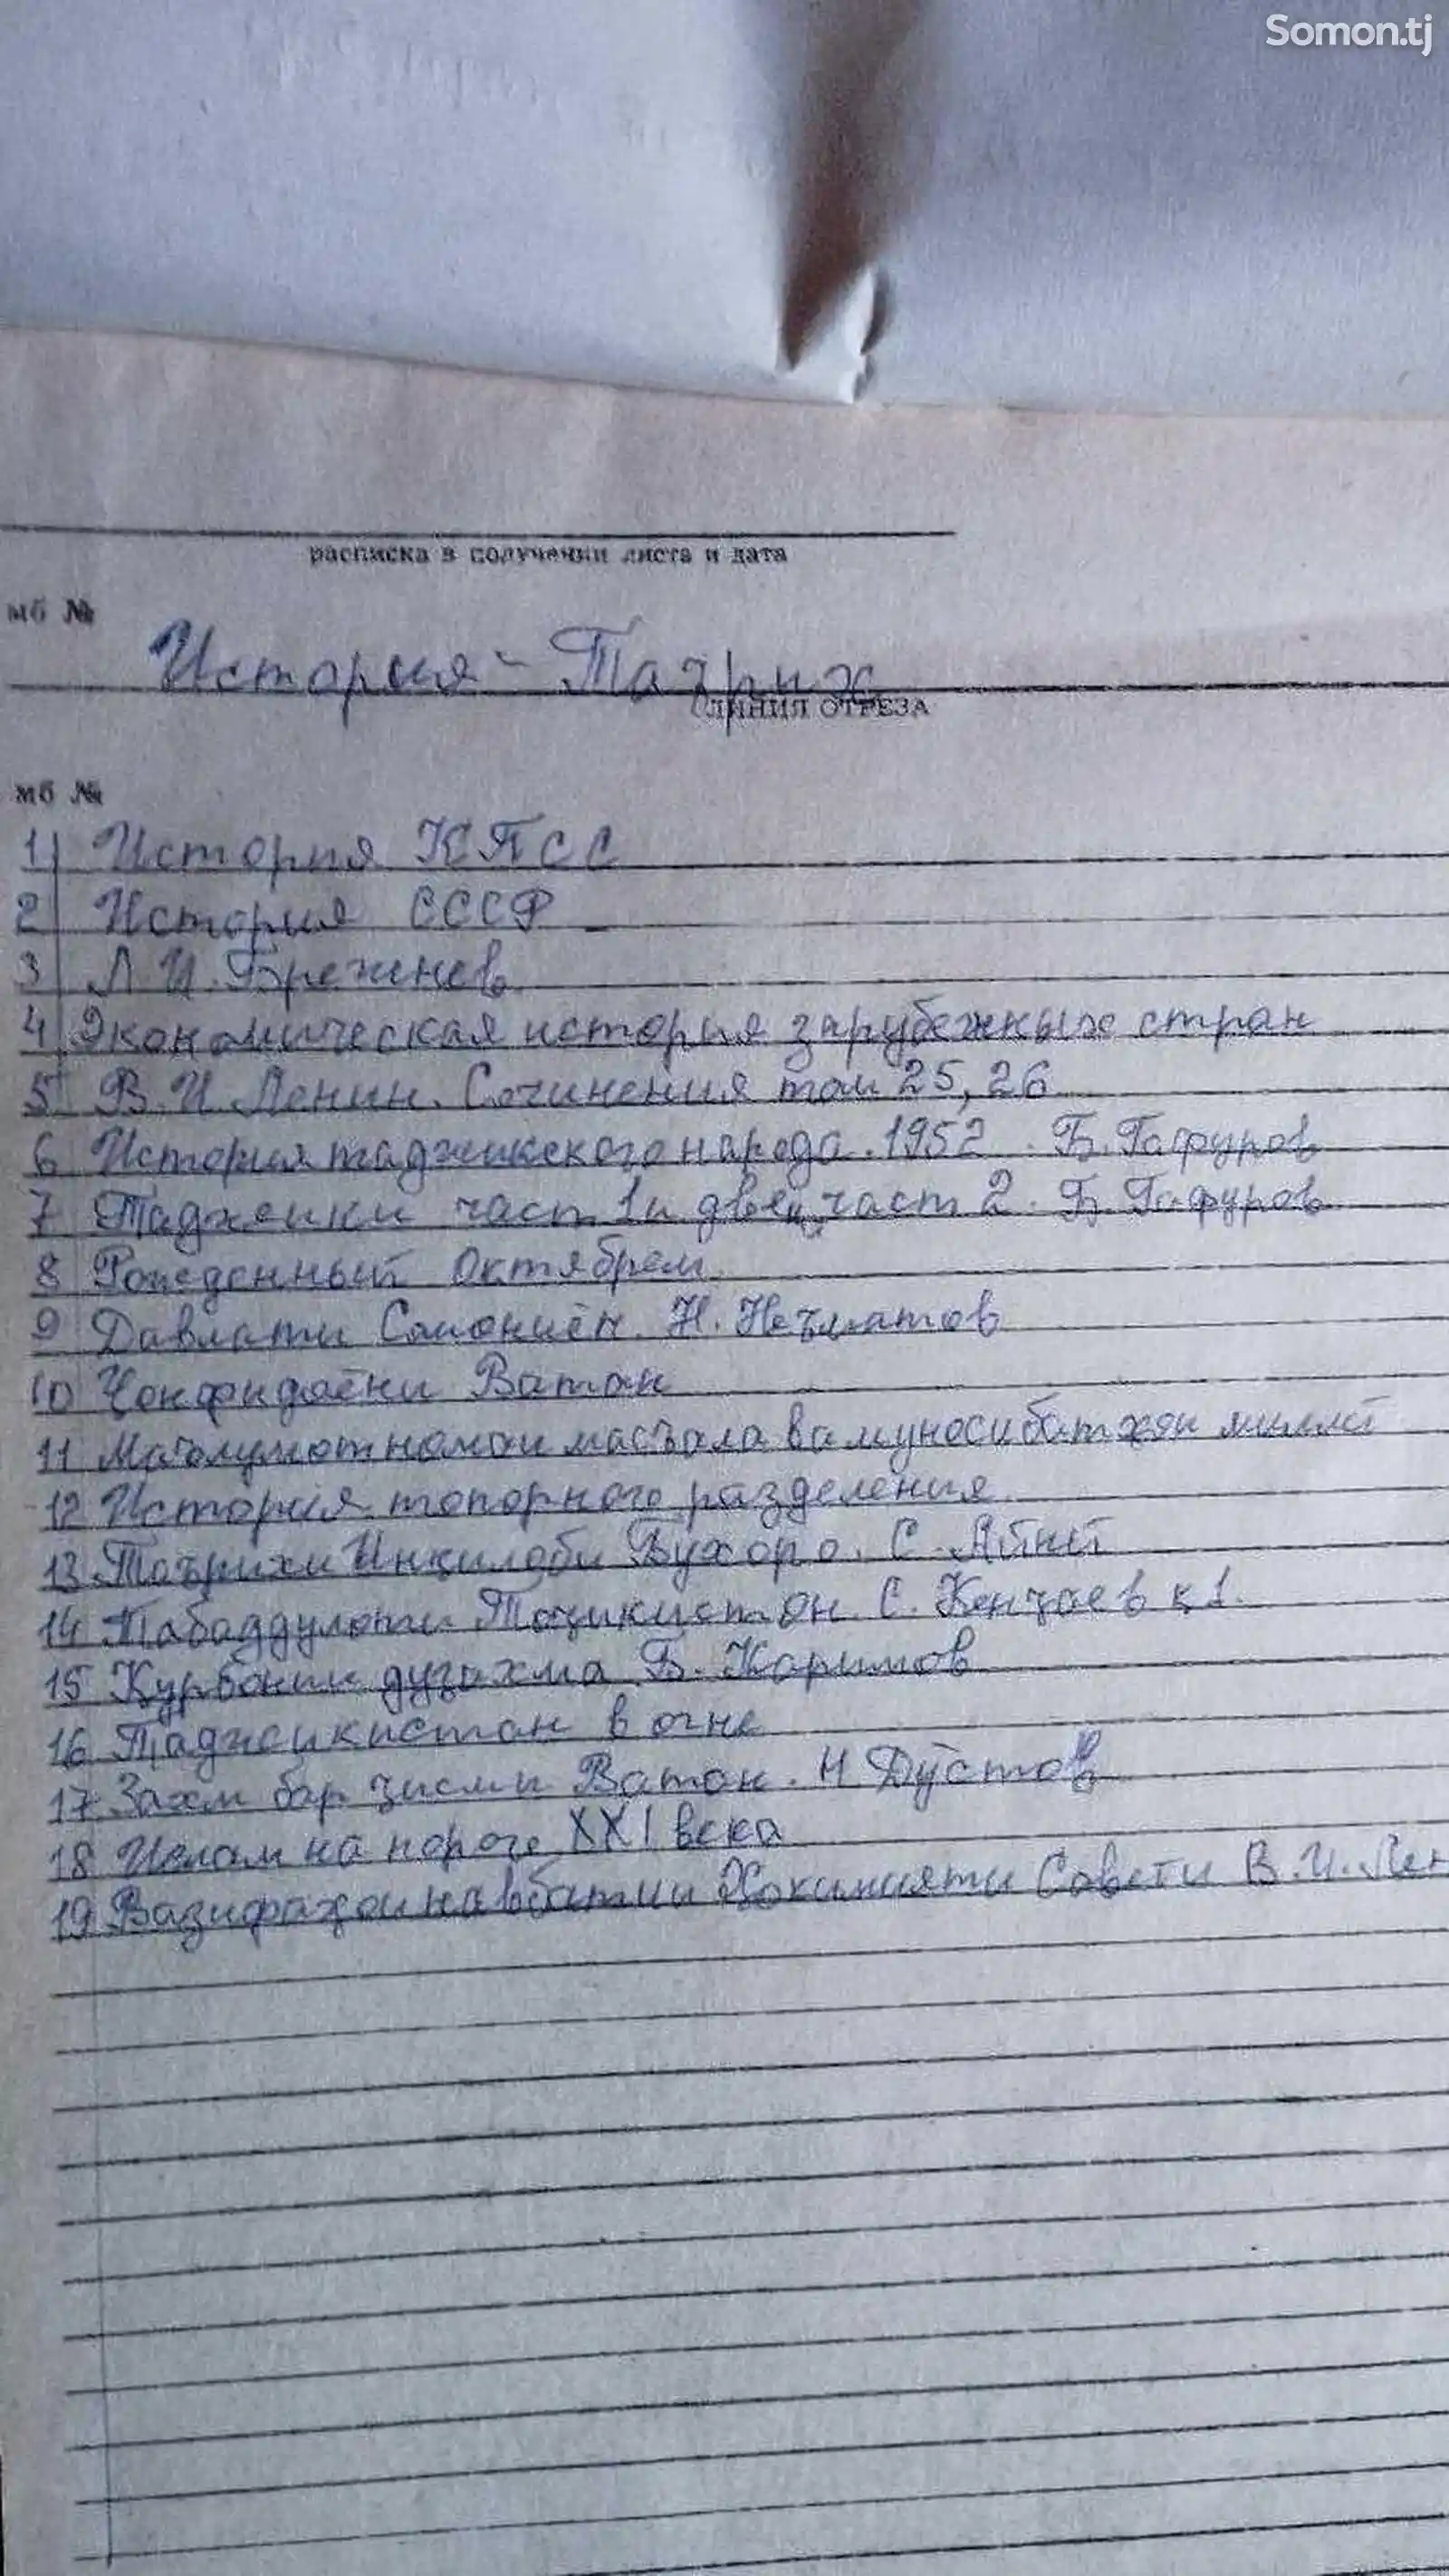 Somon.tj
расписка в получении листа и дата
мб №
История - Таърих
ЛИНИЯ ОТРЕЗА
мб №
1) История КПСС
2 История СССР
3 Л И. Брежнев
4 Экономическая история зарубежных стран
5 В. И. Ленин. Сочинения том 25, 26
6 История таджикского народа. 1952. Б. Гафуров
7 Таджики част 1 и част 2. Б. Гафуров
8 Рожденный Октябрем
9 Давлати Сомониён. Н. Неъматов
10 Ҷонфидоёни Ватан
11 Маълумотномаи масъала ва муносибатҳои миллӣ
12 История топорного разделения
13 Таърихи Инқилоби Бухоро. С. Айнӣ
14 Табаддулоти Тоҷикистон. С. Кенҷаев қ 1.
15 Курбонии дузахма Б. Каримов
16 Таджикистан в огне
17 Захм бар ҷисми Ватан. Н Дӯстов
18 Ислам на пороге XXI века
19 Вазифаҳои навбатии Ҳокимияти Совети В. И. Лен